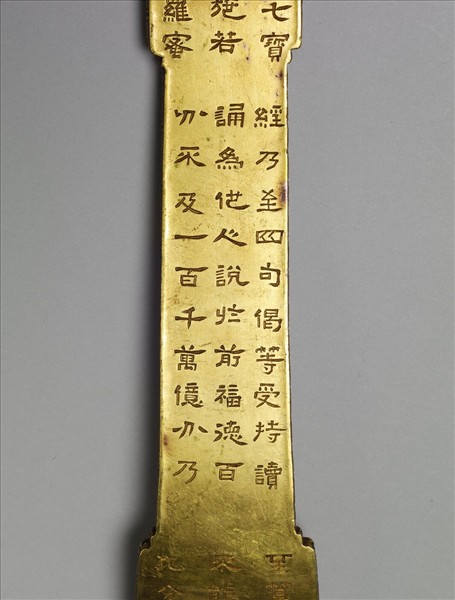 七寶
施若
羅蜜
經乃至四句偈等受持讀
誦為他人說於前福德百
分不及一百千萬億分乃